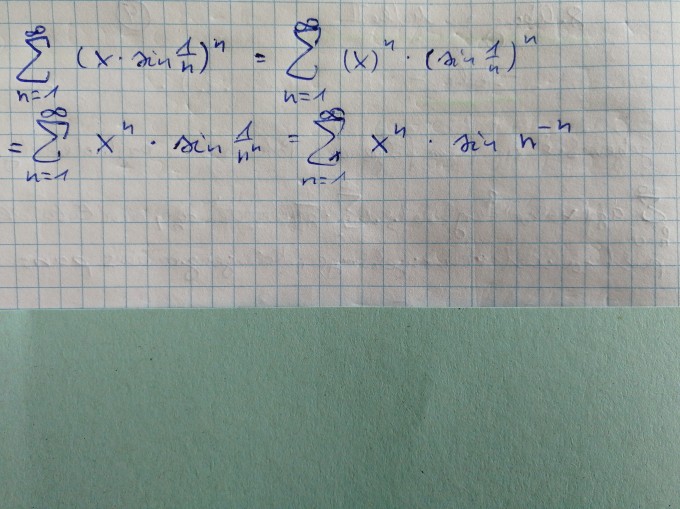 ∑_{n=1}^{∞} (x · sin 1/n)^n = ∑_{n=1}^{∞} (x)^n · (sin 1/n)^n
= ∑_{n=1}^{∞} x^n · sin 1/n^n = ∑_{n=1}^{∞} x^n · sin n^{-n}